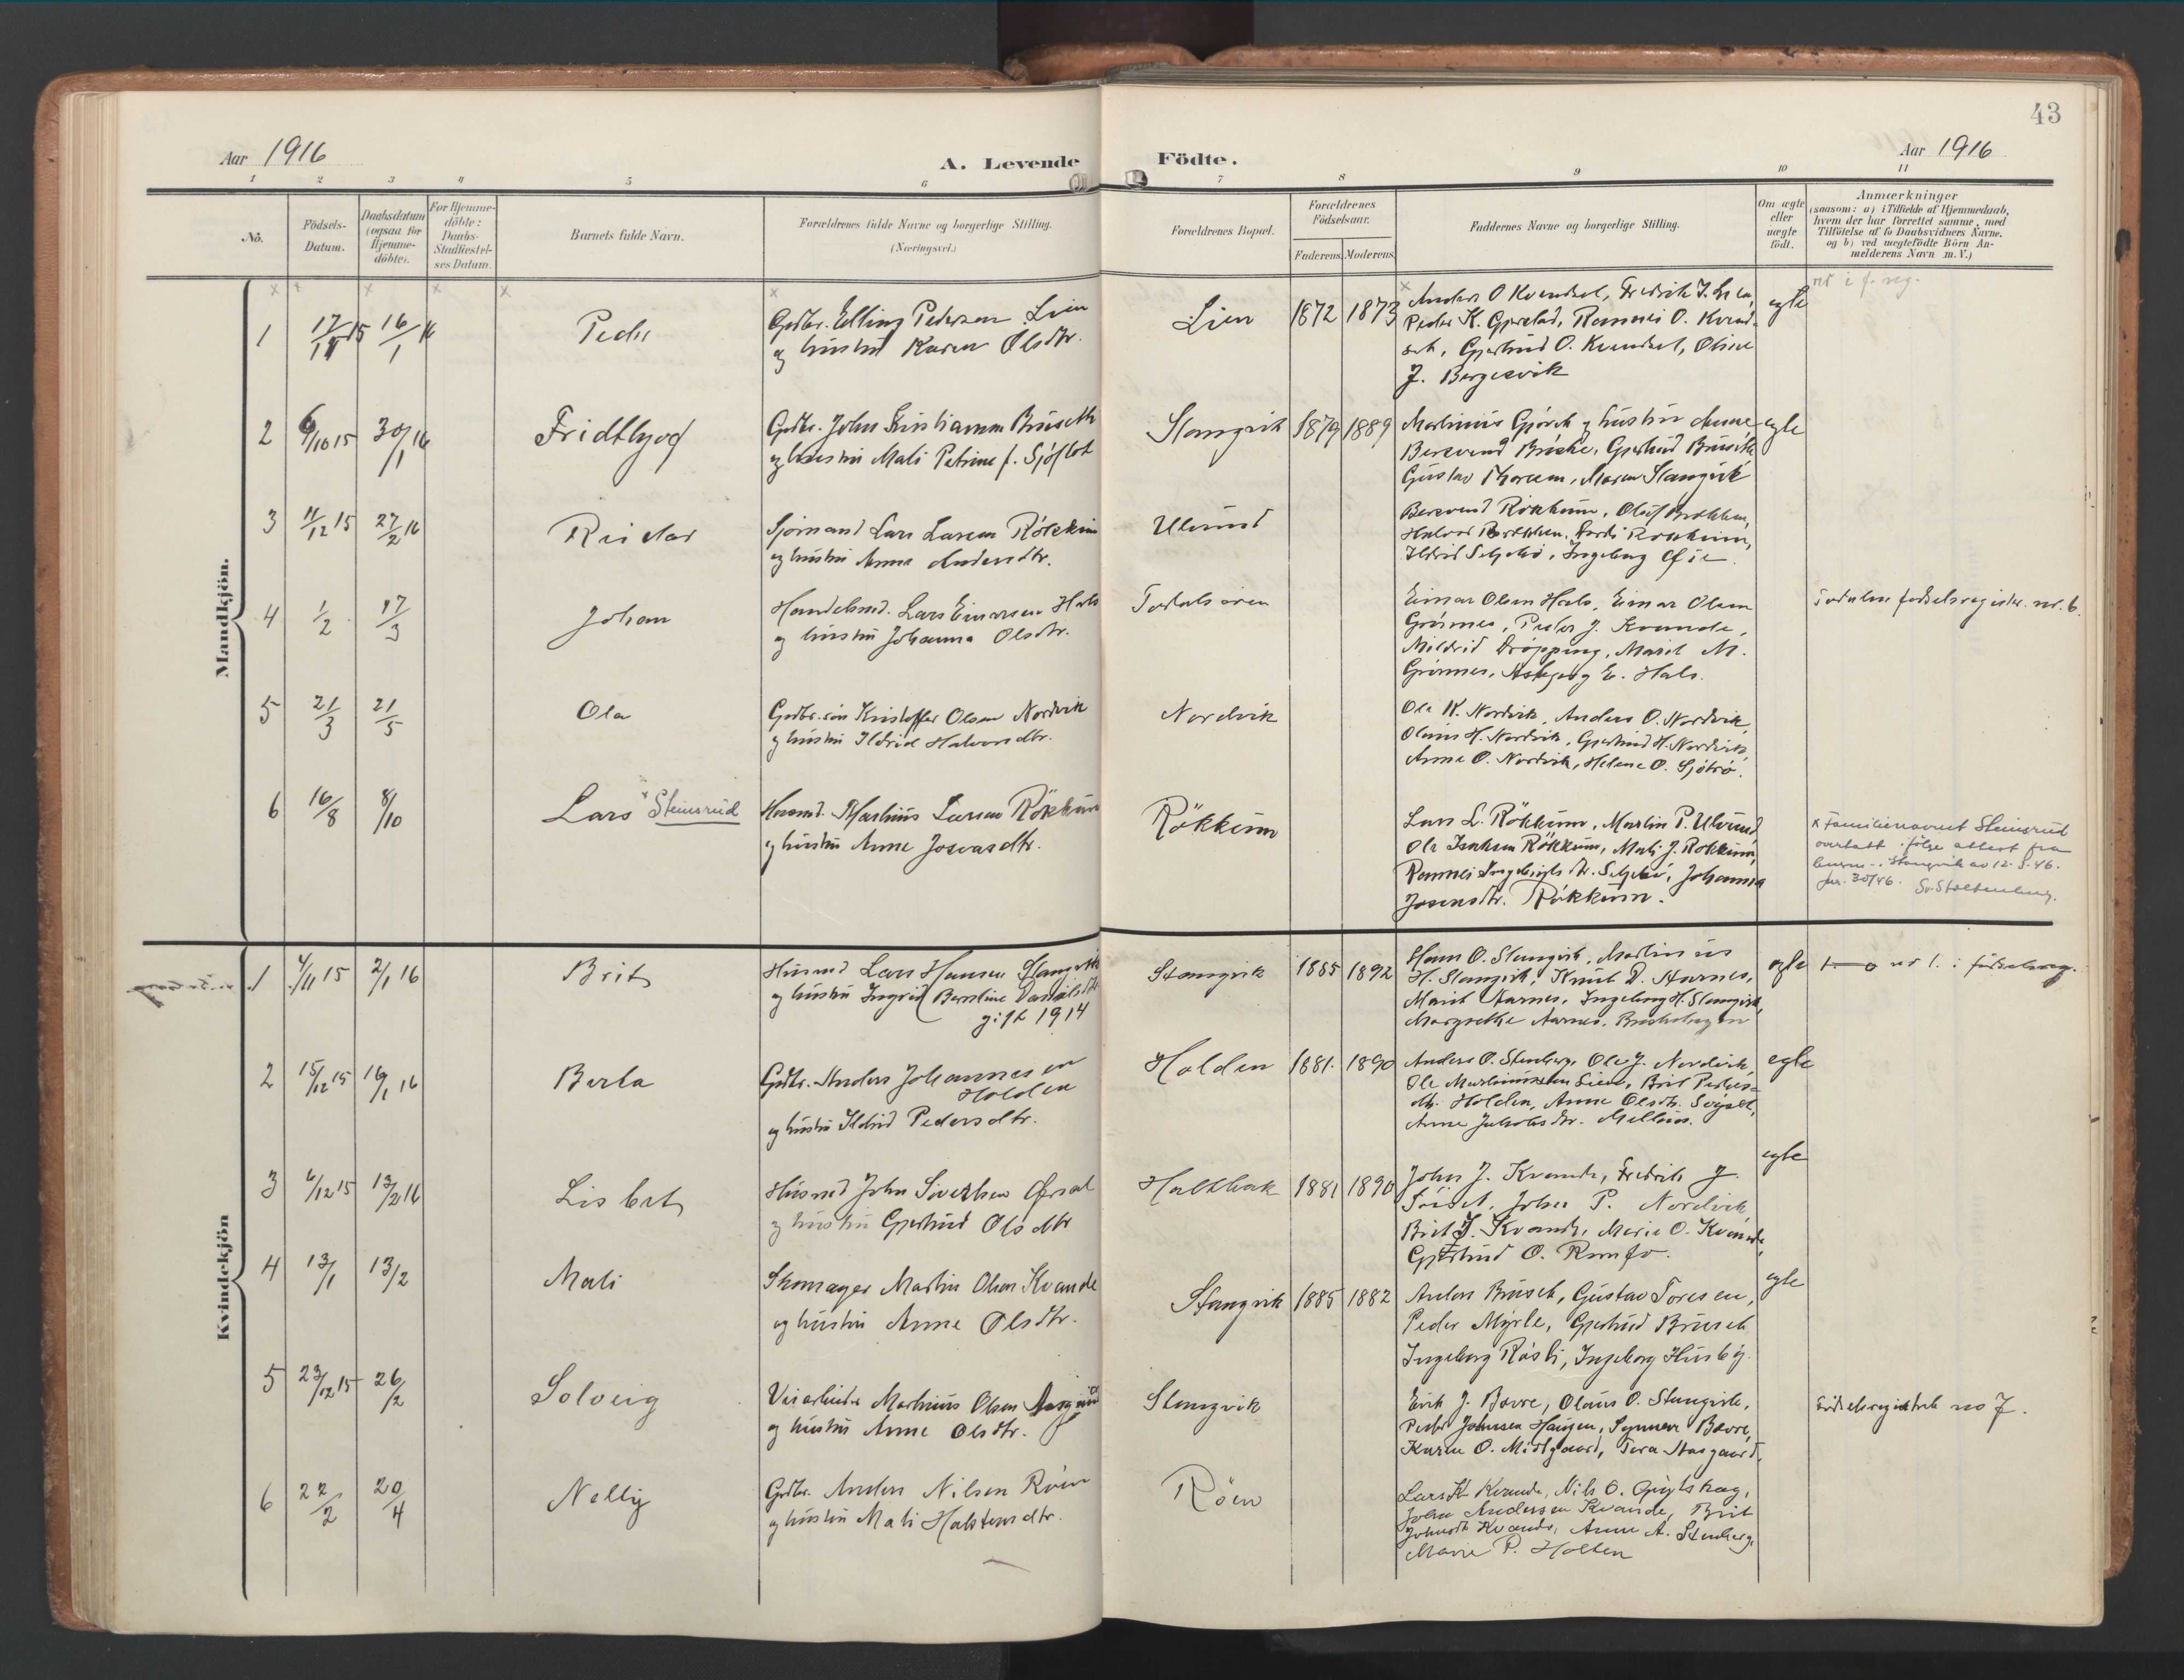 43
Aar 1916
A. Levende Födte.
Aar 1916
1 2 3 4 5 6 7 8 9 10 11
No.
Födsels-
Datum.
Daabsdatum
(ogsaa for
Hjemme-
döbte).
For Hjemme-
döbte:
Daabs-
Stadfæstel-
ses Datum.
Barnets fulde Navn.
Forældrenes fulde Navne og borgerlige Stilling.
(Næringsvei.)
Forældrenes Bopæl.
Forældrenes
Födselsaar.
Faderens. Moderens.
Faddernes Navne og borgerlige Stilling.
Om ægte
eller
uægte
födt.
Anmærkninger
(saasom: a) i Tilfælde af Hjemmedaab,
hvem der har forrettet samme, med
Tilföielse af to Daabsvidners Navne.
og b) ved uægtefödte Börn An-
melderens Navn m. V.)
Mandkjön.
1 17/11 15 16/1 16 Peder
Grdbr. Elling Pedersen Lien
og hustru Karen Olsdtr.
Lien 1872 1873
Anders O Kvendset, Fredrik J.
Peder K. Gjeilad, Rannei O. Kvend-
set, Gjertrud O. Kvendset, Oline
J. Bergesvik
egte
2 6/10 15 30/1 16 Fridthjof
Grdbr. John Kristiansen Brüseth
og hustru Mali Petrine f. Sjöflot
Stangvik 1879 1889
Martinus Gjörck og hustru Anne
Beresvend Brüske, Gjertrud Brüseth
Gustav Thoresen, Maren Stangvik
egte
3 11/12 15 27/2 16 Reidar
Sjömand Lars Larsen Rökkum
og hustru Anna Andersdtr.
Ulvund
Beresvend Rökkum, Oluf
Halvor Rökkum,
Ildrid Seljebö, Ingeborg
4 1/2 17/3 Johan
Handelsmd. Lars Einarsen Hals
og hustru Johanna Olsdtr.
Todalsören
Einar Olsen Hals, Einar Olsen
Grönnes, Peder J. Kvande,
Mildrid Dröpping, Marit M.
Grönnes, Asbjørg E. Hals.
Todalens födselsregister. nr. 6.
5 21/3 21/5 Ola
Grdbr.sön Kristoffer Olsen Nordvik
og hustru Ildrid Halvorsdtr.
Nordvik
Ola K. Nordvik, Anders O. Nordvik,
Olaus H. Nordvik, Gjertrud H. Nordvik,
Anne O. Nordvik, Helene O. Sjöbrö.
6 16/8 8/10 Lars x Steinsrud
Husmd. Martinus Larsen Rökkum
og hustru Anne Josvasdtr.
Rökkum
Lars L. Rökkum, Martin P. Ulvund
Ole Isaksen Rökkum, Mali J. Rökkum,
Rannei Ingebrigtsdtr. Seljebö, Johanna
Josvasdtr. Rökkum.
x Familienavnet Steinsrud
overtatt ifölge attest fra
Stangvik av 12-8-46.
jnr. 30/46. Sv Stoltenberg.
Kvindekjön
1 4/11 15 2/1 16 Brit
Husmd Lars Hansen Stangvik
og hustru Ingrid Berntine Danielsdtr
gift 1914
Stangvik 1885 1892
Hans O. Stangvik, Martinus
H. Stangvik, Knut D. Aarnes,
Marit Aarnes, Ingeborg H. Stangvik,
Margrethe Aarnes.
egte
nr 1. i födselsreg.
2 15/12 15 16/1 16 Berta
Grdbr. Anders Johannesen
Holden
og hustru Ildrid Pedersdtr.
Holden 1881 1890
Anders O. Stenberg, Ole J. Nordvik,
Ole Martinussen Lien, Brit Peders-
dtr. Holden, Anne Olsdtr.
Anne Jakobsdtr. Mellem.
egte
3 6/12 15 13/2 16 Lisbet
Husmd John Sivertsen
og hustru Gjertrud Olsdtr
Haltbak 1881 1890
John J. Kvande, Fredrik J.
John P. Nordvik
Brit J. Kvande, Marie O. Kvande,
Gjertrud O. Romfo.
egte
4 13/1 13/2 Mali
Skomager Martin Olsen Kvande
og hustru Anne Olsdtr.
Stangvik 1885 1882
Anders Brüset, Gustav Toresen,
Peder Myrle, Gjertrud Brüset
Ingeborg Röshi, Ingeborg Husby.
egte
5 23/12 15 26/2 Solveig
Martinus Olsen
og hustru Anne Olsdtr.
Stangvik
Erik J. Bævre, Olaus O. Stangvik,
Peder Johnsen Haugen, Synnøve Bævre,
Karen O. Midtgaard, Tora Aasgaard.
Födselsregistret no 7.
6 22/2 20/4 Nelly
Grdbr. Anders Nilsen Röen
og hustru Mali Halstensdtr.
Röen
Lars K Kvande, Nils O.
John Anderssen Kvande, Brit
Kvande, Anne A. Stenberg,
Marie P. Holten